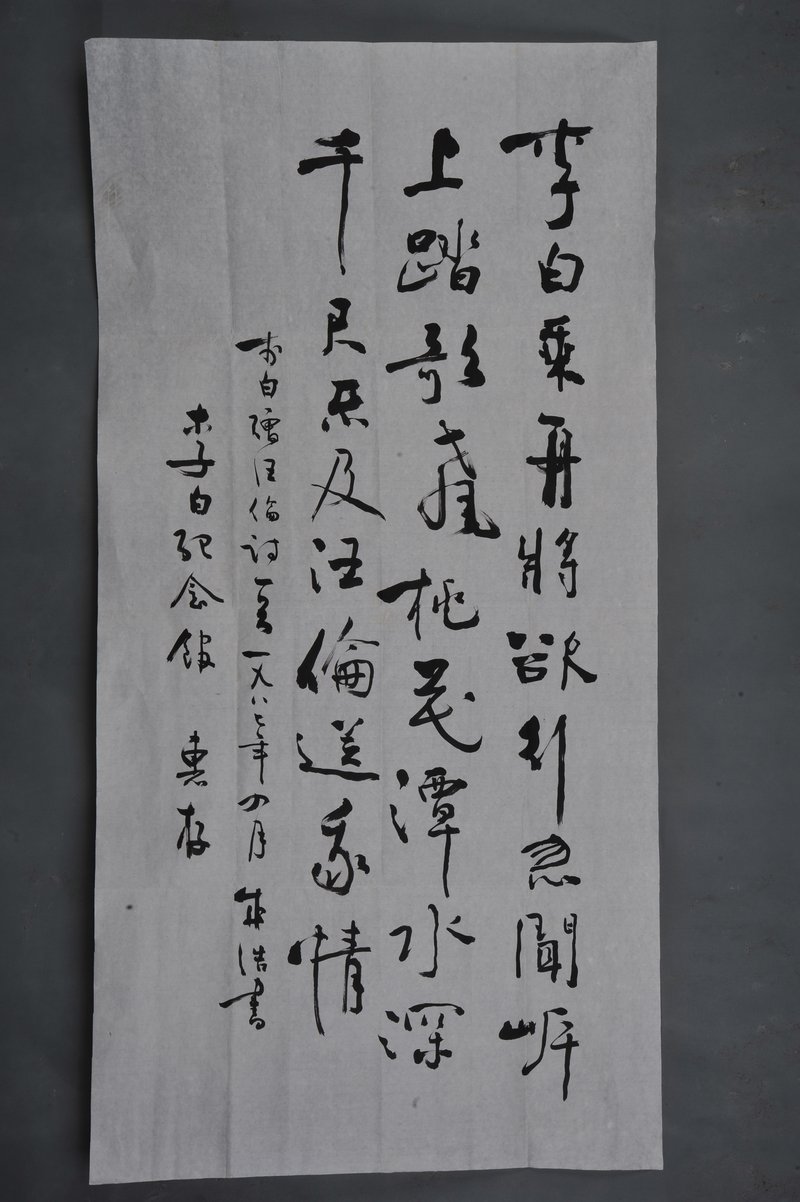 李白乗舟將欲行忽聞岸
上踏歌聲桃花潭水深
千尺不及汪倫送我情
李白贈汪倫詩一首一九八七年四月 浩書
李白紀念館 惠存